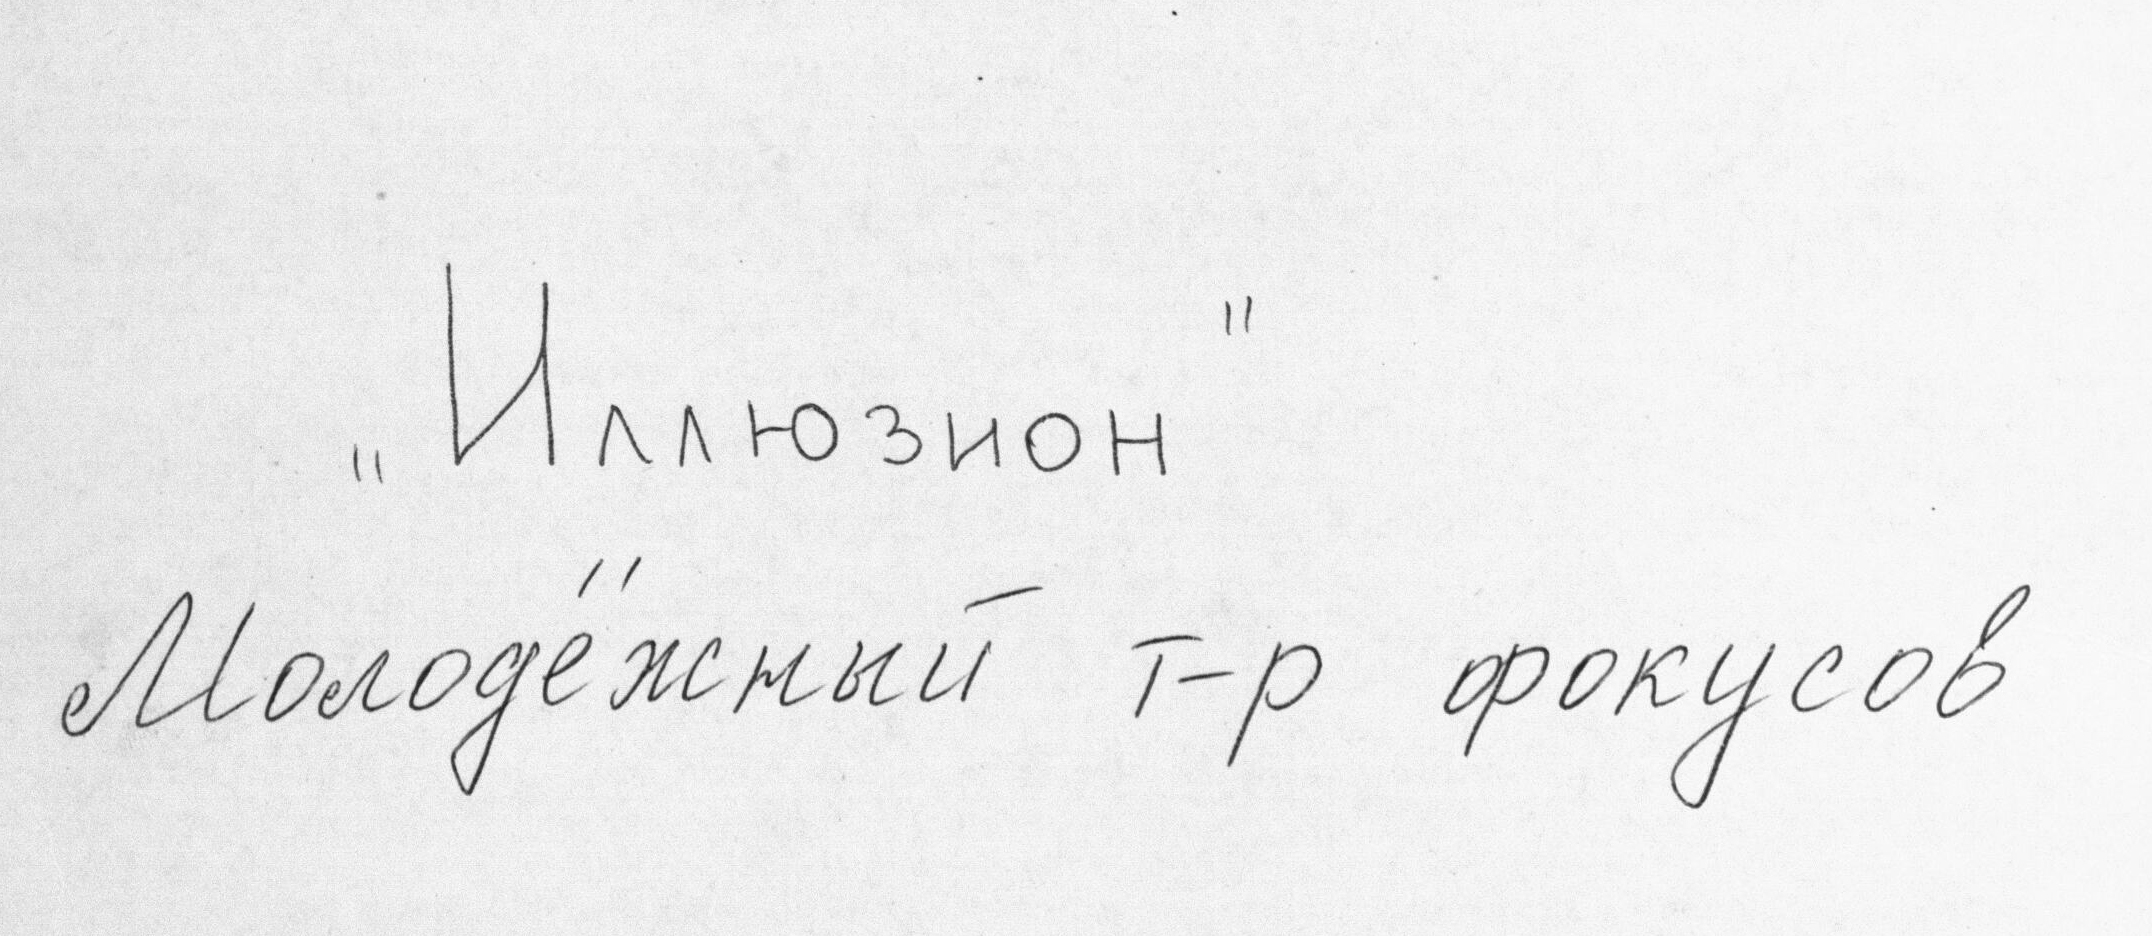 „Иллюзион"
Молодёжный т-р фокусов